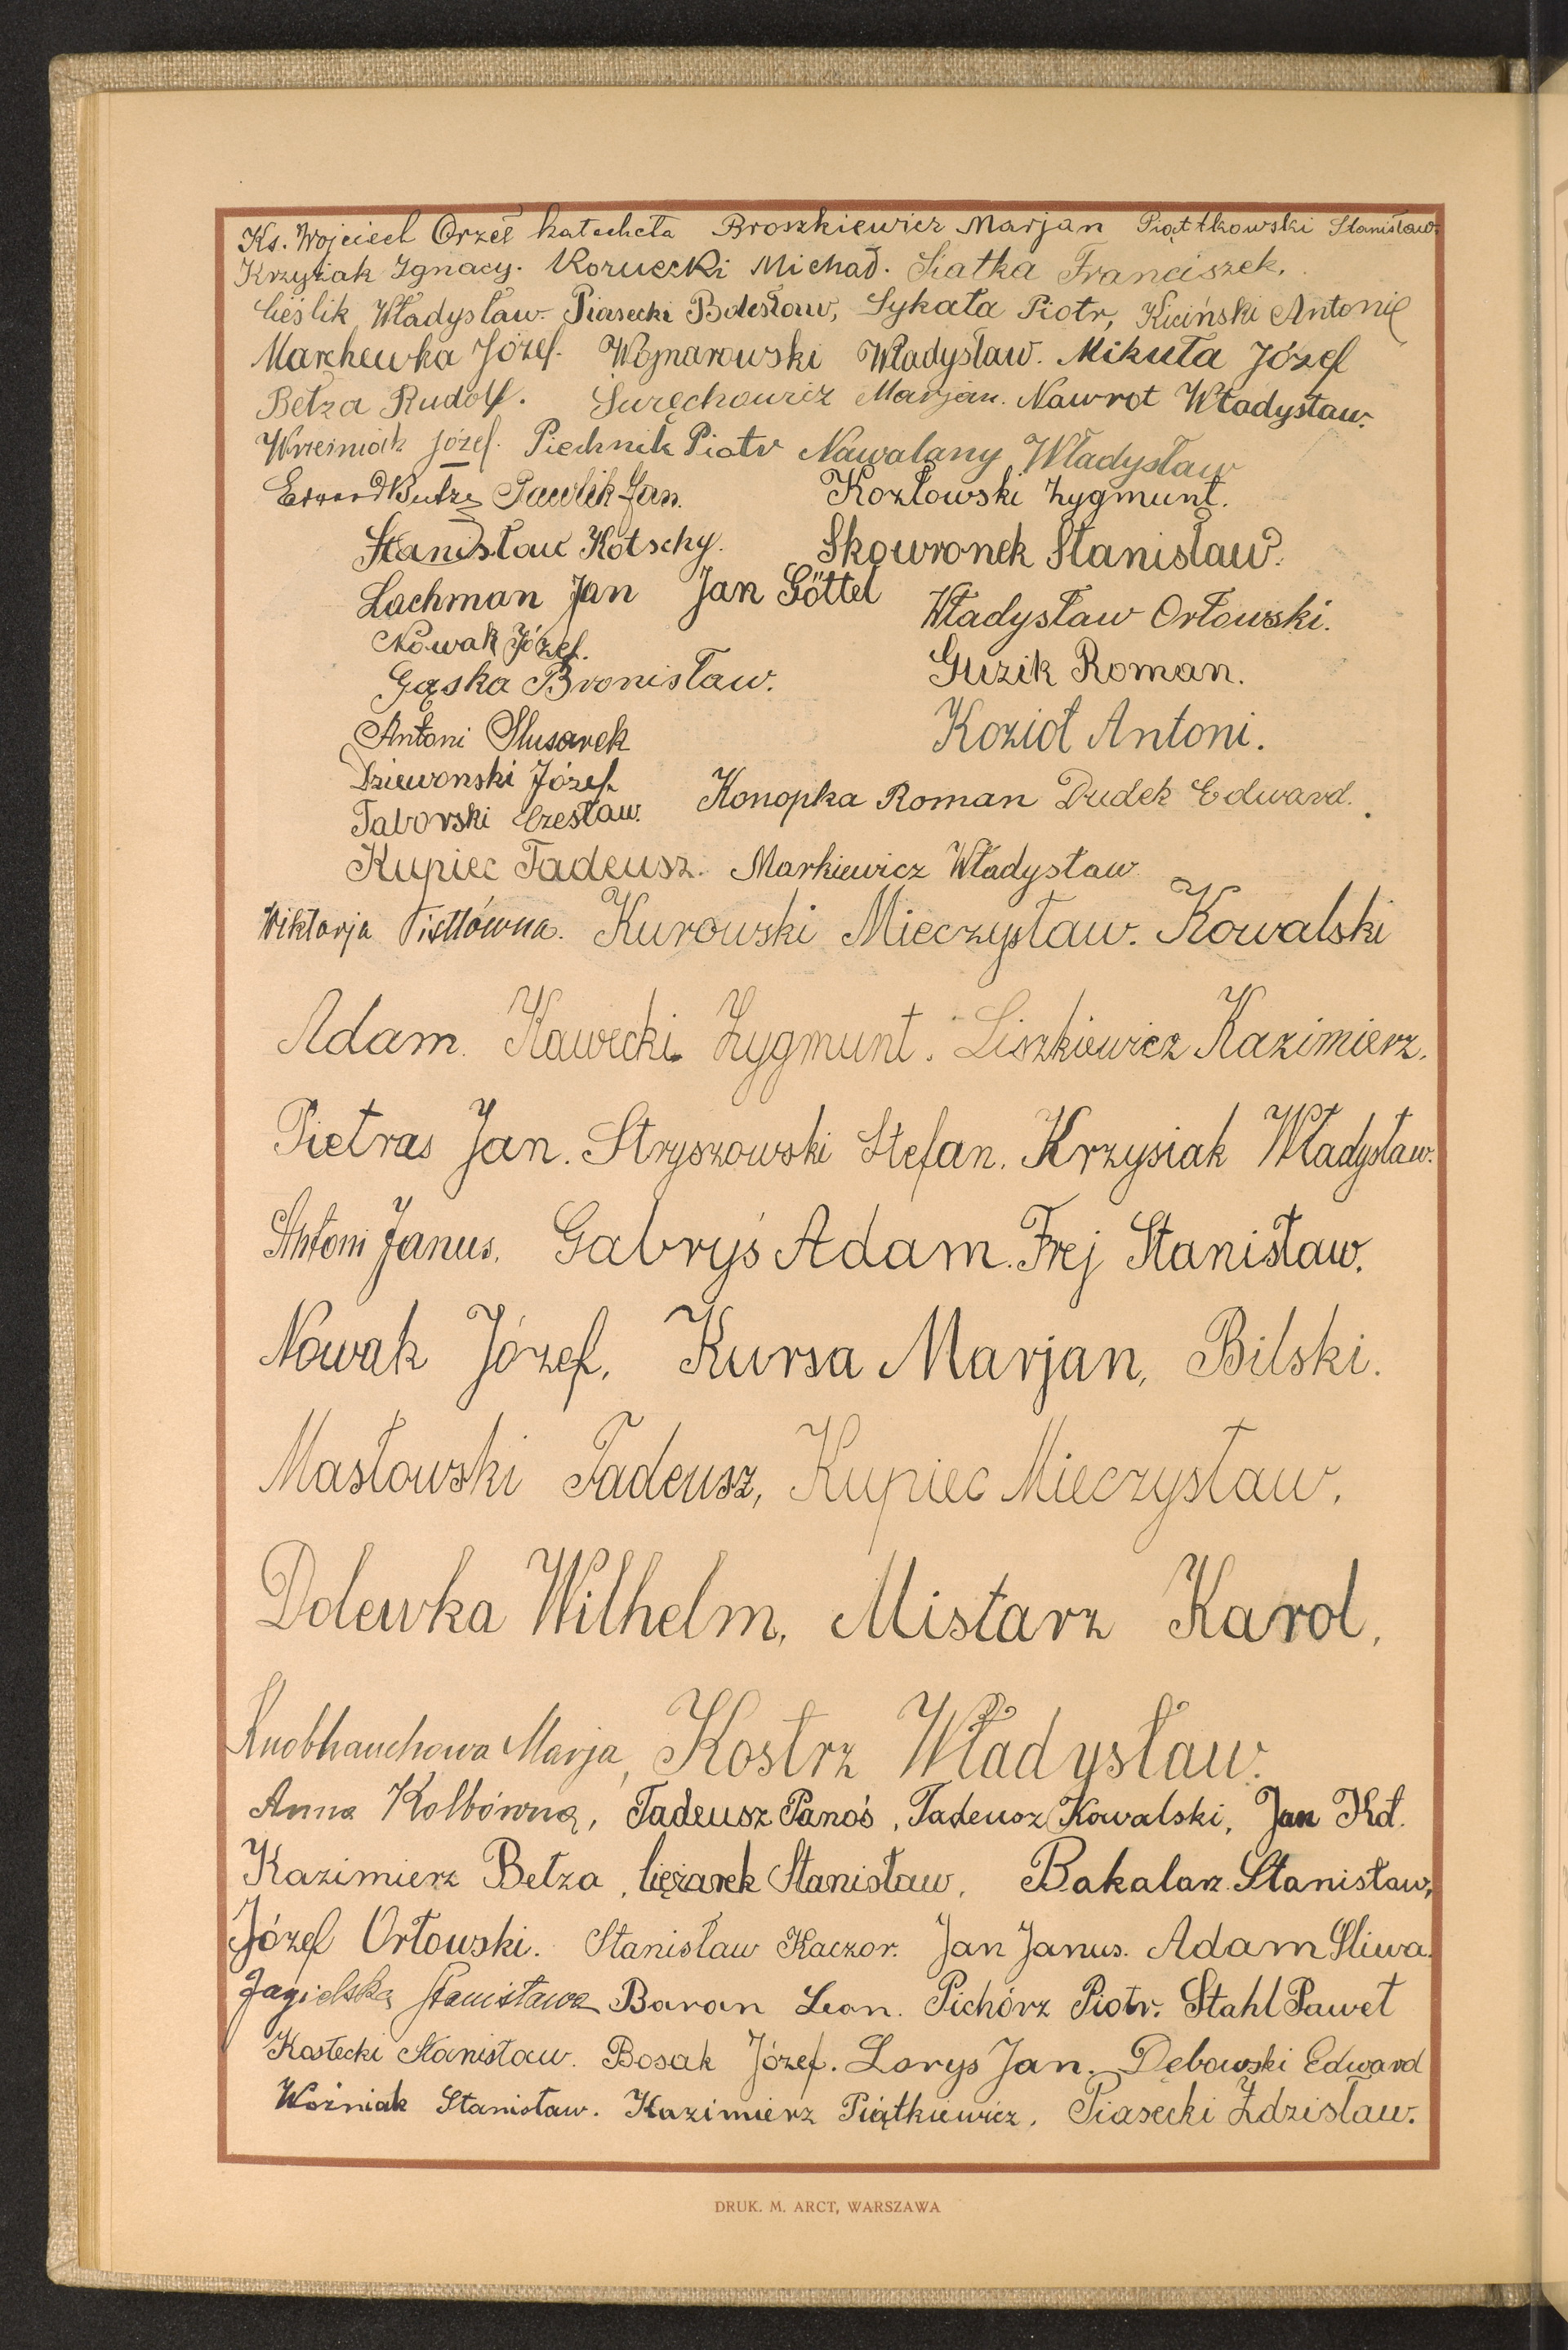 Ks. Wojciech Orzeł katecheta Broszkiewicz Marjan Piąttkowski Stanisław
Krzysiak Ignacy. Koruczki Michał. Siatka Franciszek.
Cieślik Władysław. Piasecki Bolesław, Sykała Piotr, Kiciński Antoni
Marchewka Józef. Wojnarowski Władysław. Mikuła Józef
Bełza Rudolf. Marjan. Nawrot Władysław.
Wrześniak Józef. Piechnik Piotr Nawalany Władysław
Edward Butrze Pawlik Jan. Kozłowski Zygmunt.
Stanisław Kotschy. Skowronek Stanisław.
Lachman Jan Jan Göttel Władysław Orłowski.
Nowak Józef.
Gąska Bronisław. Guzik Roman.
Antoni Slusarek Kozioł Antoni.
Dziewonski Józef.
Taborski Czesław. Konopka Roman Dudek Edward.
Kupiec Tadeusz. Markiewicz Władysław
Wiktorja Kurowski Mieczysław. Kowalski
Adam. Kawecki Zygmunt. Liszkiewicz Kazimierz.
Pietras Jan. Stryszowski Stefan. Krzysiak Władysław.
Antoni Janus. Gabryś Adam. Frej Stanisław.
Nowak Józef, Kursa Marjan, Bilski.
Masłowski Tadeusz, Kupiec Mieczysław.
Dolewka Wilhelm, Mistarz Karol,
Knobhauchowa Marja, Kostrz Władysław.
Anna Kolbówna, Tadeusz Panoś, Tadeusz Kowalski, Jan Kot.
Kazimierz Bełza, Ciężarek Stanisław, Bakalarz Stanisław,
Józef Orłowski. Stanisław Kaczor. Jan Janus. Adam Sliwa.
Jagielska Stanisława Baran Leon. Pichórz Piotr. Stahl Paweł
Kastecki Stanisław. Bosak Józef. Lorys Jan. Dębowski Edward
Woźniak Stanisław. Kazimierz Piątkiewicz, Piasecki Zdzisław.
DRUK. M. ARCT, WARSZAWA